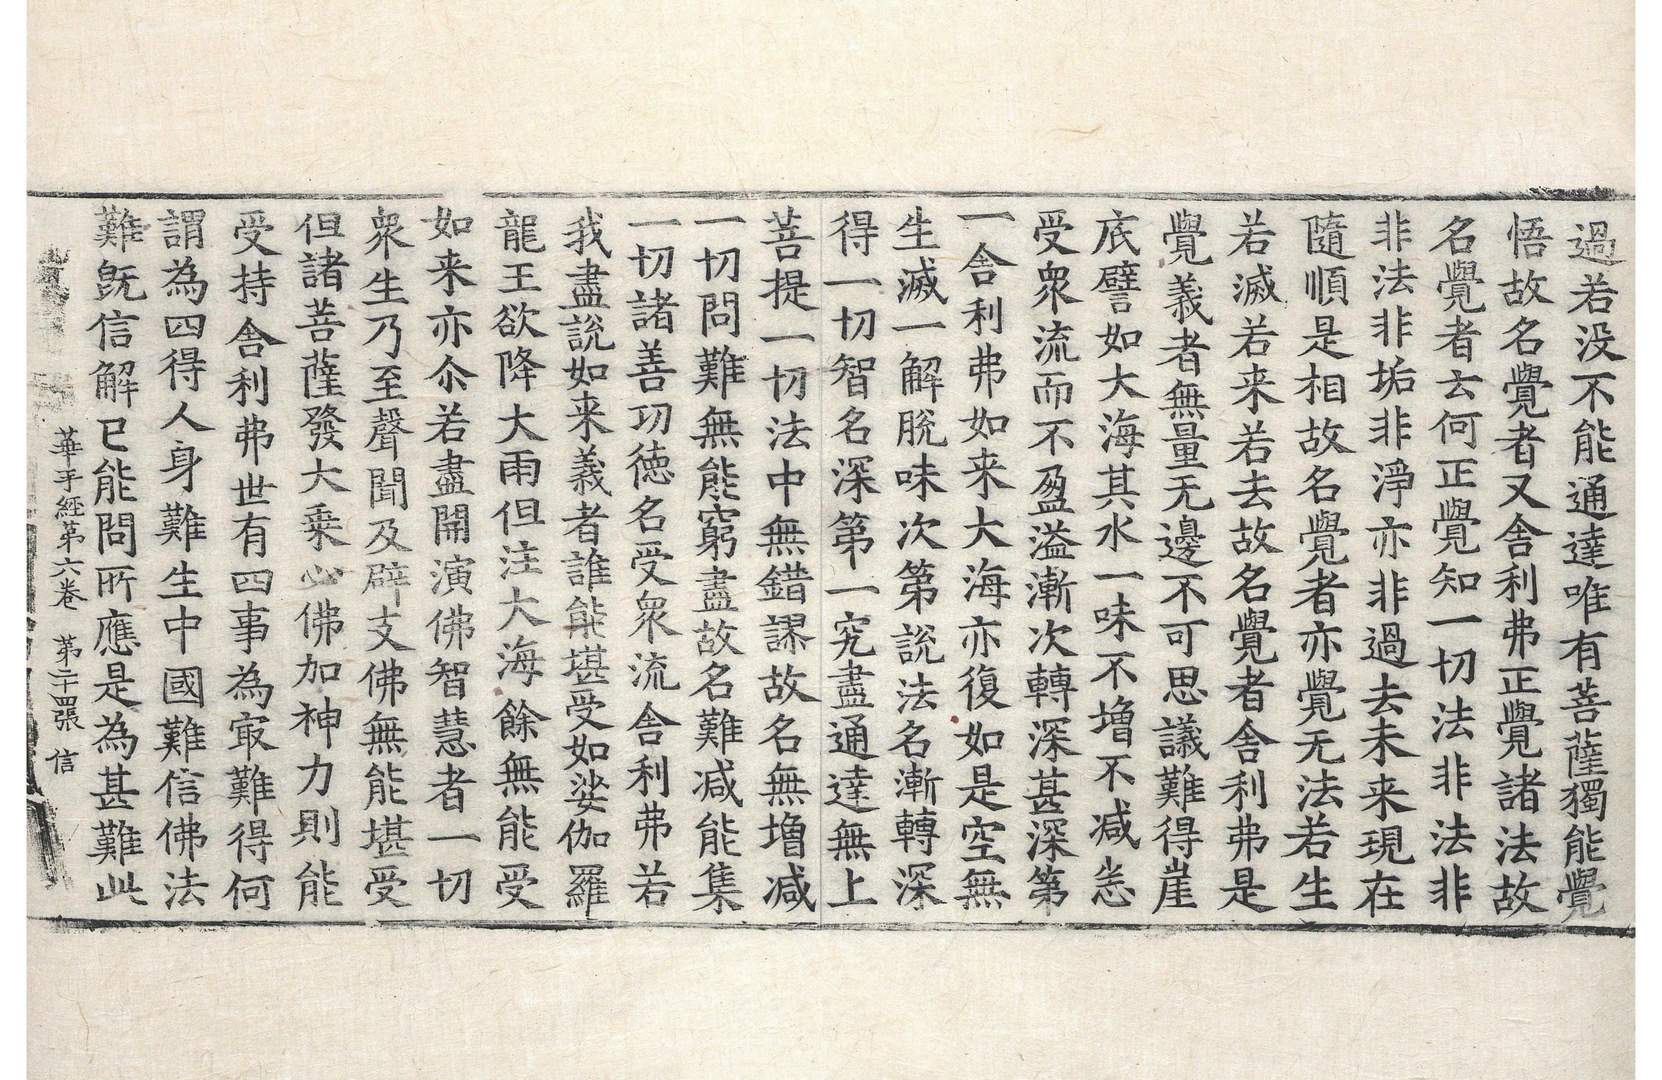 過若没不能通達唯有菩薩獨能覺
悟故名覺者又舍利弗正覺諸法故
名覺者云何正覺知一切法非法非
非法非垢非淨亦非過去未来現在
隨順是相故名覺者亦覺无法若生
若滅若来若去故名覺者舍利弗是
覺義者無量无邊不可思議難得崖
底譬如大海其水一味不增不减悉
受衆流而不盈溢漸次轉深甚深第
一舍利弗如来大海亦復如是空無
生滅一解脫味次第說法名漸轉深
得一切智名深第一究盡通達無上
菩提一切法中無錯謬故名無增减
一切問難無能窮盡故名難减能集
一切諸善功徳名受衆流舍利弗若
我盡說如来義者誰能堪受如娑伽羅
龍王欲降大雨但注大海餘無能受
如来亦尒若盡開演佛智慧者一切
衆生乃至聲聞及辟支佛無能堪受
但諸菩薩發大乗心佛加神力則能
受持舍利弗世有四事為㝡難得何
謂為四得人身難生中國難信佛法
難旣信解已能問所應是為甚難此
華手經第六卷 第二十四張 信